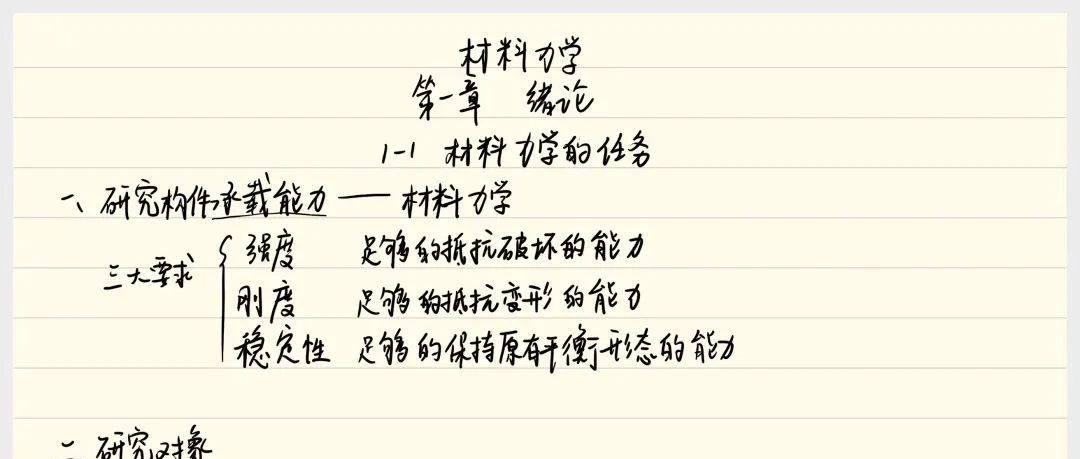 材料力学
第一章 绪论
1-1 材料力学的任务
一、研究构件承载能力 —— 材料力学
三大要求 { 强度 足够的抵抗破坏的能力
刚度 足够的抵抗变形的能力
稳定性 足够的保持原有平衡形态的能力
二 研究对象